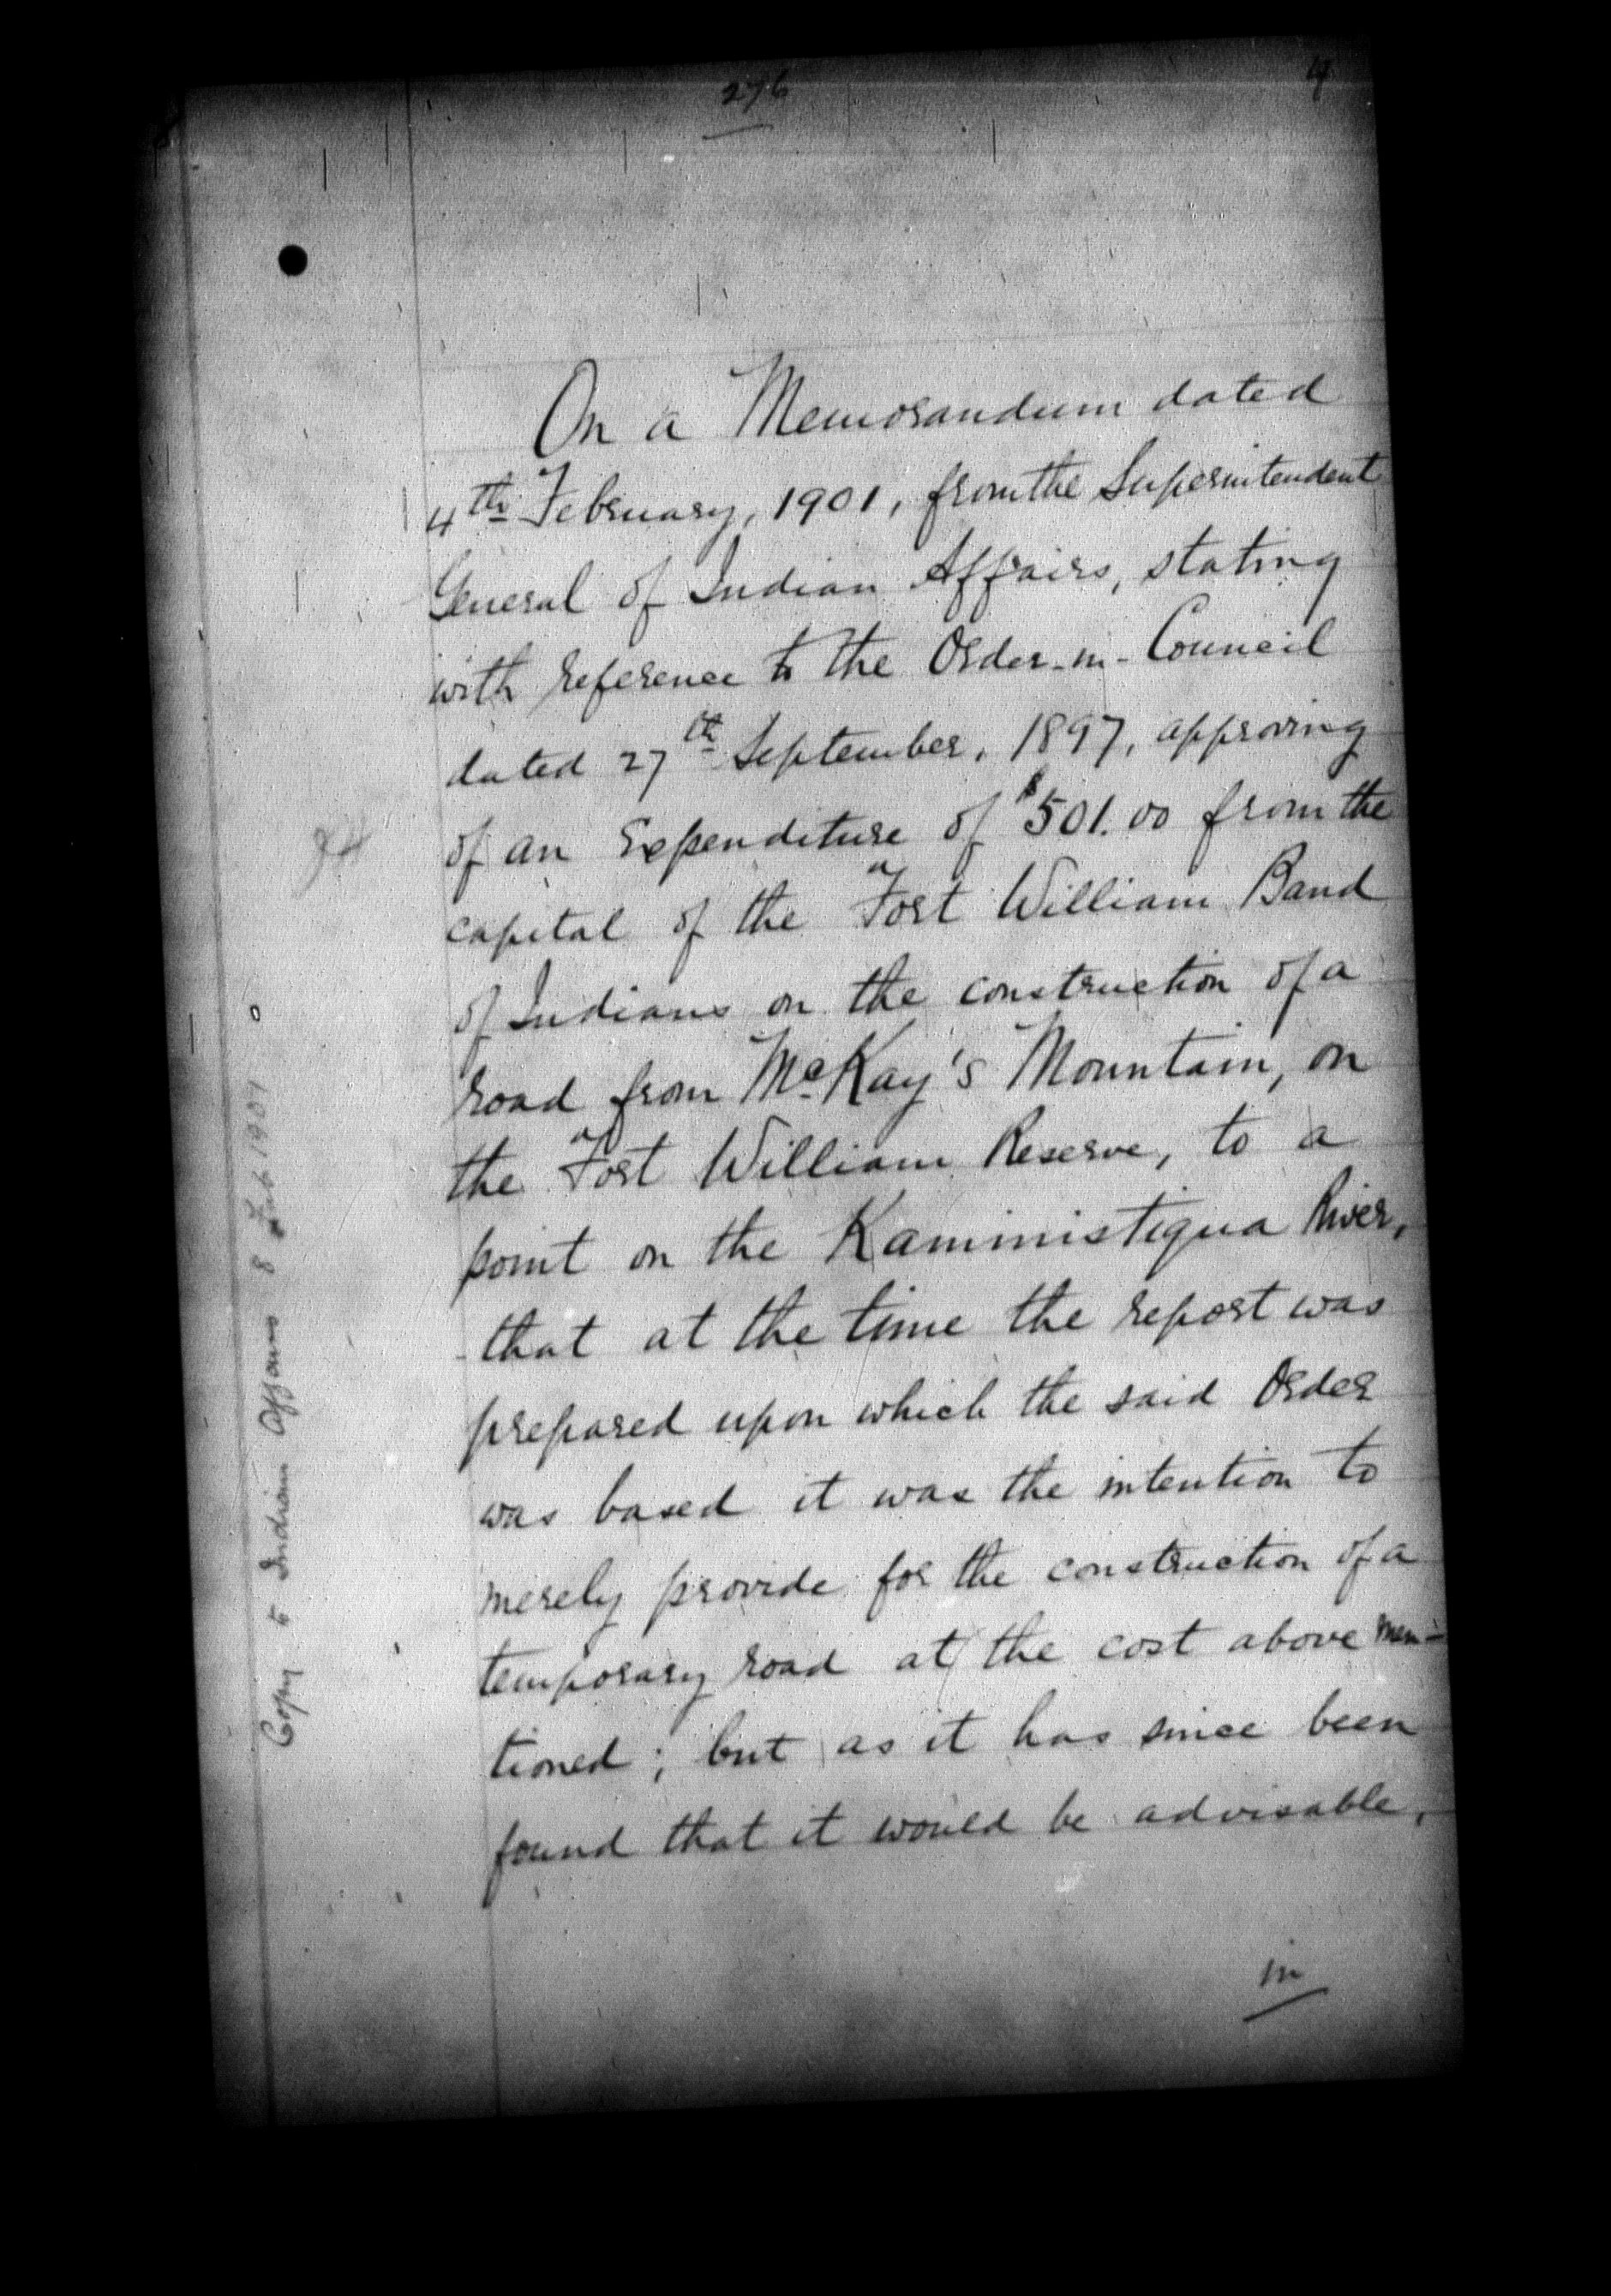 276
On a Memorandum dated
4th February, 1901, from the Superintendent
General of Indian Affairs, stating
with reference to the Order-in-Council
dated 27th September, 1897, approving
of an Expenditure of $501.00 from the
capital of the Fort William Band
of Indians on the construction of a
road from McKay's Mountain, on
the Fort William Reserve, to a
point on the Kaministiqua River,
that at the time the report was
prepared upon which the said Order
was based it was the intention to
merely provide for the construction of a
temporary road at the cost above men-
tioned; but as it has since been
found that it would be advisable,
in
Copy to Indian Affairs 8 Feb 1901